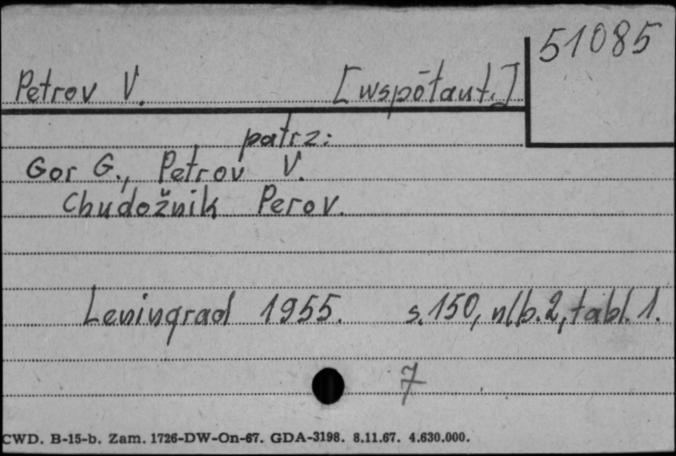 51085
Petrov V. [współaut.]
patrz:
Gor G., Petrov V.
Chudožnik Perov.
Leningrad 1955. s.150, nlb.2, tabl.1.
7
CWD. B-15-b. Zam. 1726-DW-On-67. GDA-3198. 8.11.67. 4.630.000.